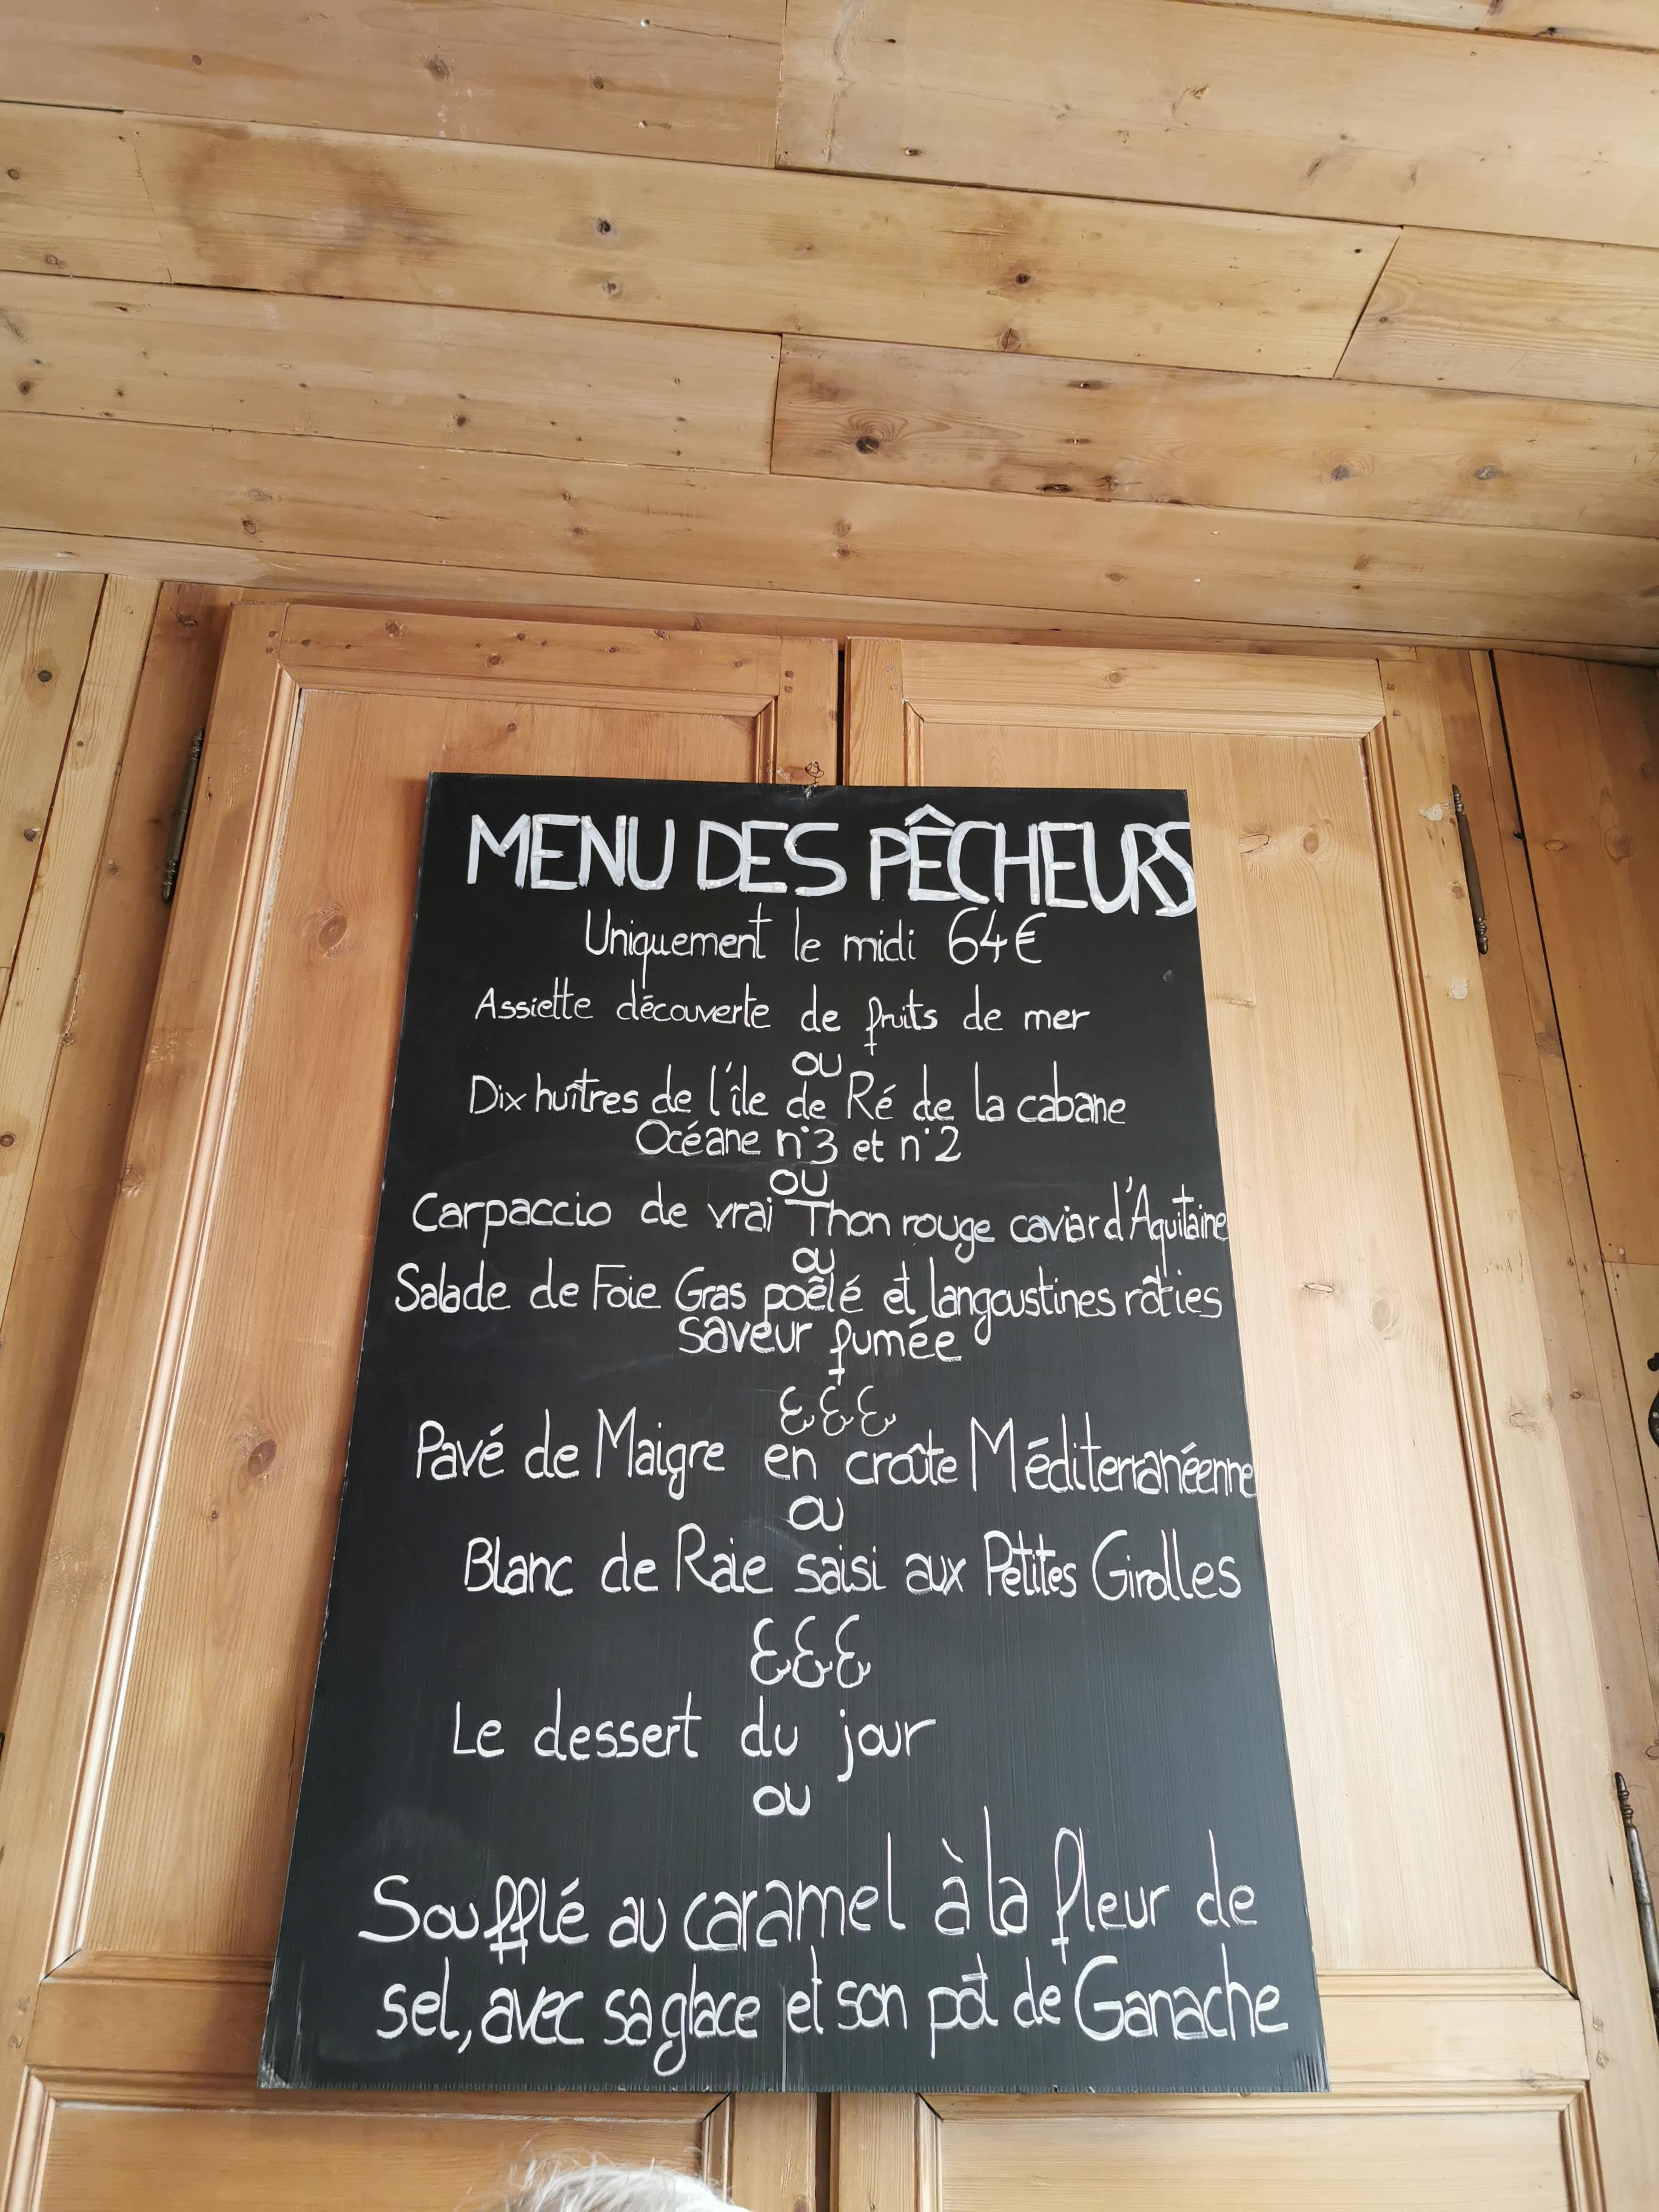 MENU DES PÊCHEURS
Uniquement le midi 64€
Assiette découverte de fruits de mer
ou
Dix huîtres de l'île de Ré de la cabane
Océane n°3 et n°2
ou
Carpaccio de vrai Thon rouge caviar d'Aquitaine
ou
Salade de Foie Gras poêlé et langoustines rôties
saveur fumée
Pavé de Maigre en croûte Méditerranéenne
ou
Blanc de Raie saisi aux Petites Girolles
Le dessert du jour
ou
Soufflé au caramel à la fleur de
sel, avec sa glace et son pôt de Ganache